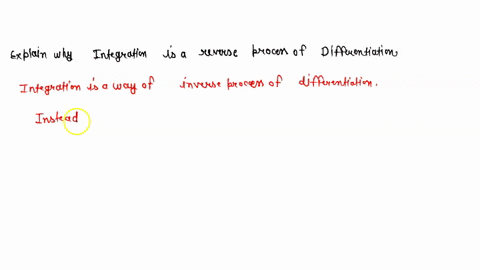 Explain why Integration is a reverse process of Differentiation
Integration is a way of inverse process of differentiation.
Instead